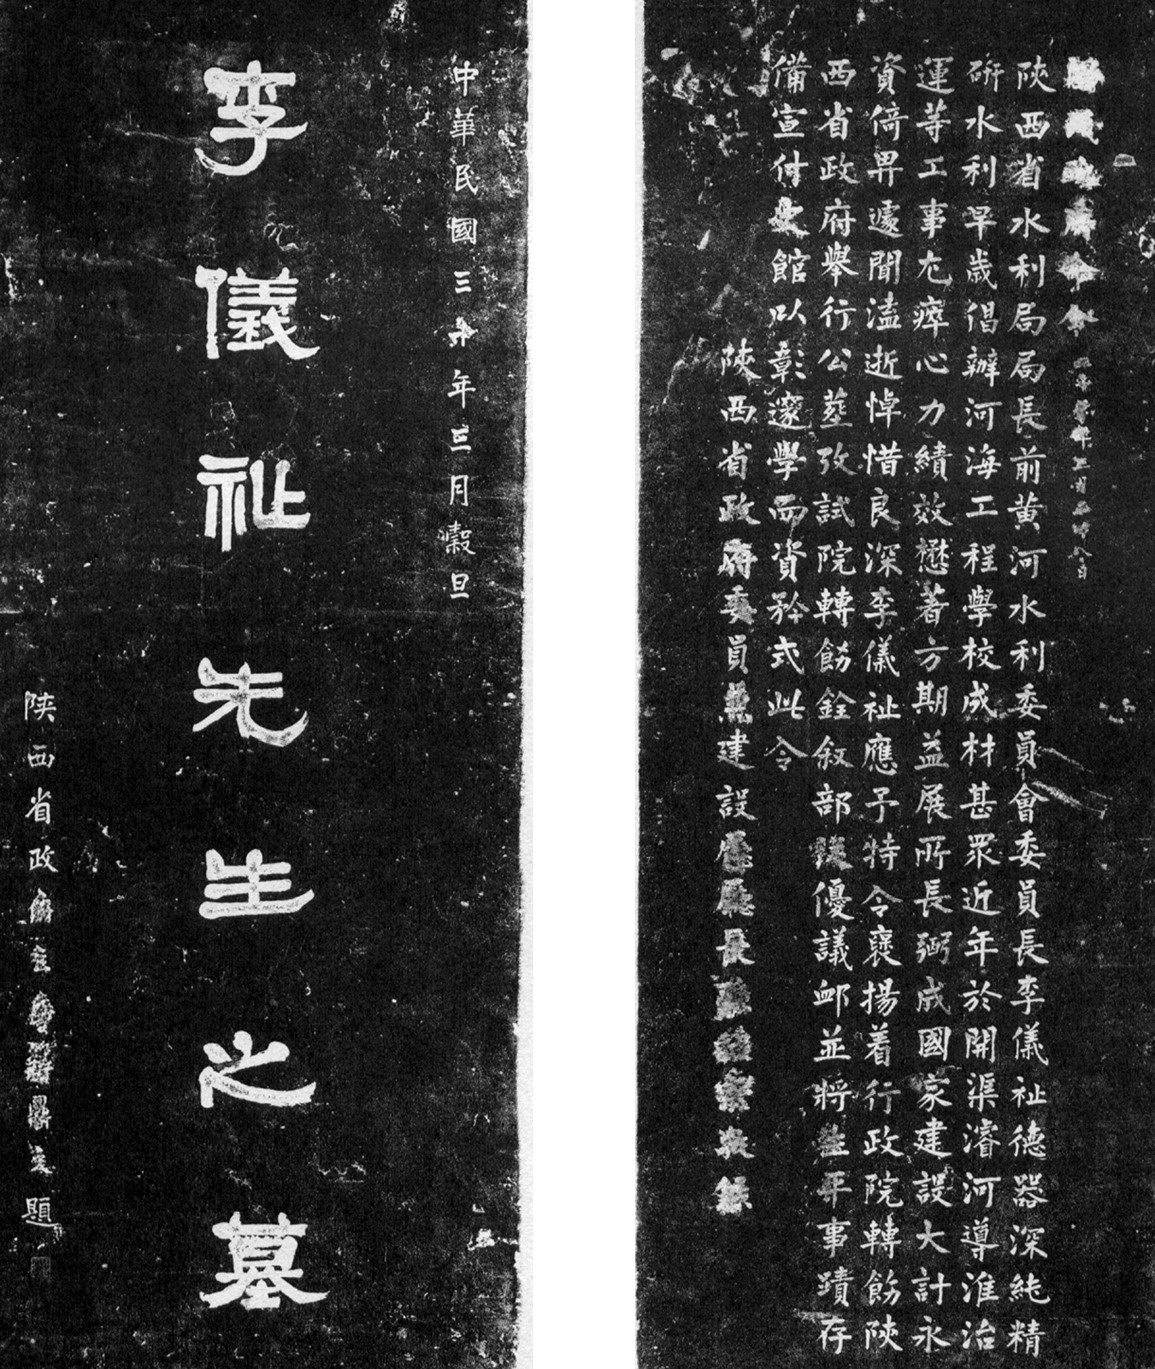 府令
陝西省水利局局長前黃河水利委員會委員長李儀祉德器深純精
研水利早歲倡辦河海工程學校成材甚眾近年於開渠濬河導淮治
運等工事尤瘁心力績效懋著方期益展所長弼成國家建設大計永
資倚畀遽聞溘逝悼惜良深李儀祉應予特令褒揚着行政院轉飭陝
西省政府舉行公塟攷試院轉飭銓敘部從優議卹並將生平事蹟存
備宣付史館以彰邃學而資矜式此令
陝西省政府委員兼建設廳廳長孫紹宗敬錄
中華民國三十年三月穀旦
李儀祉先生之墓
陝西省政府主席蔣鼎文題